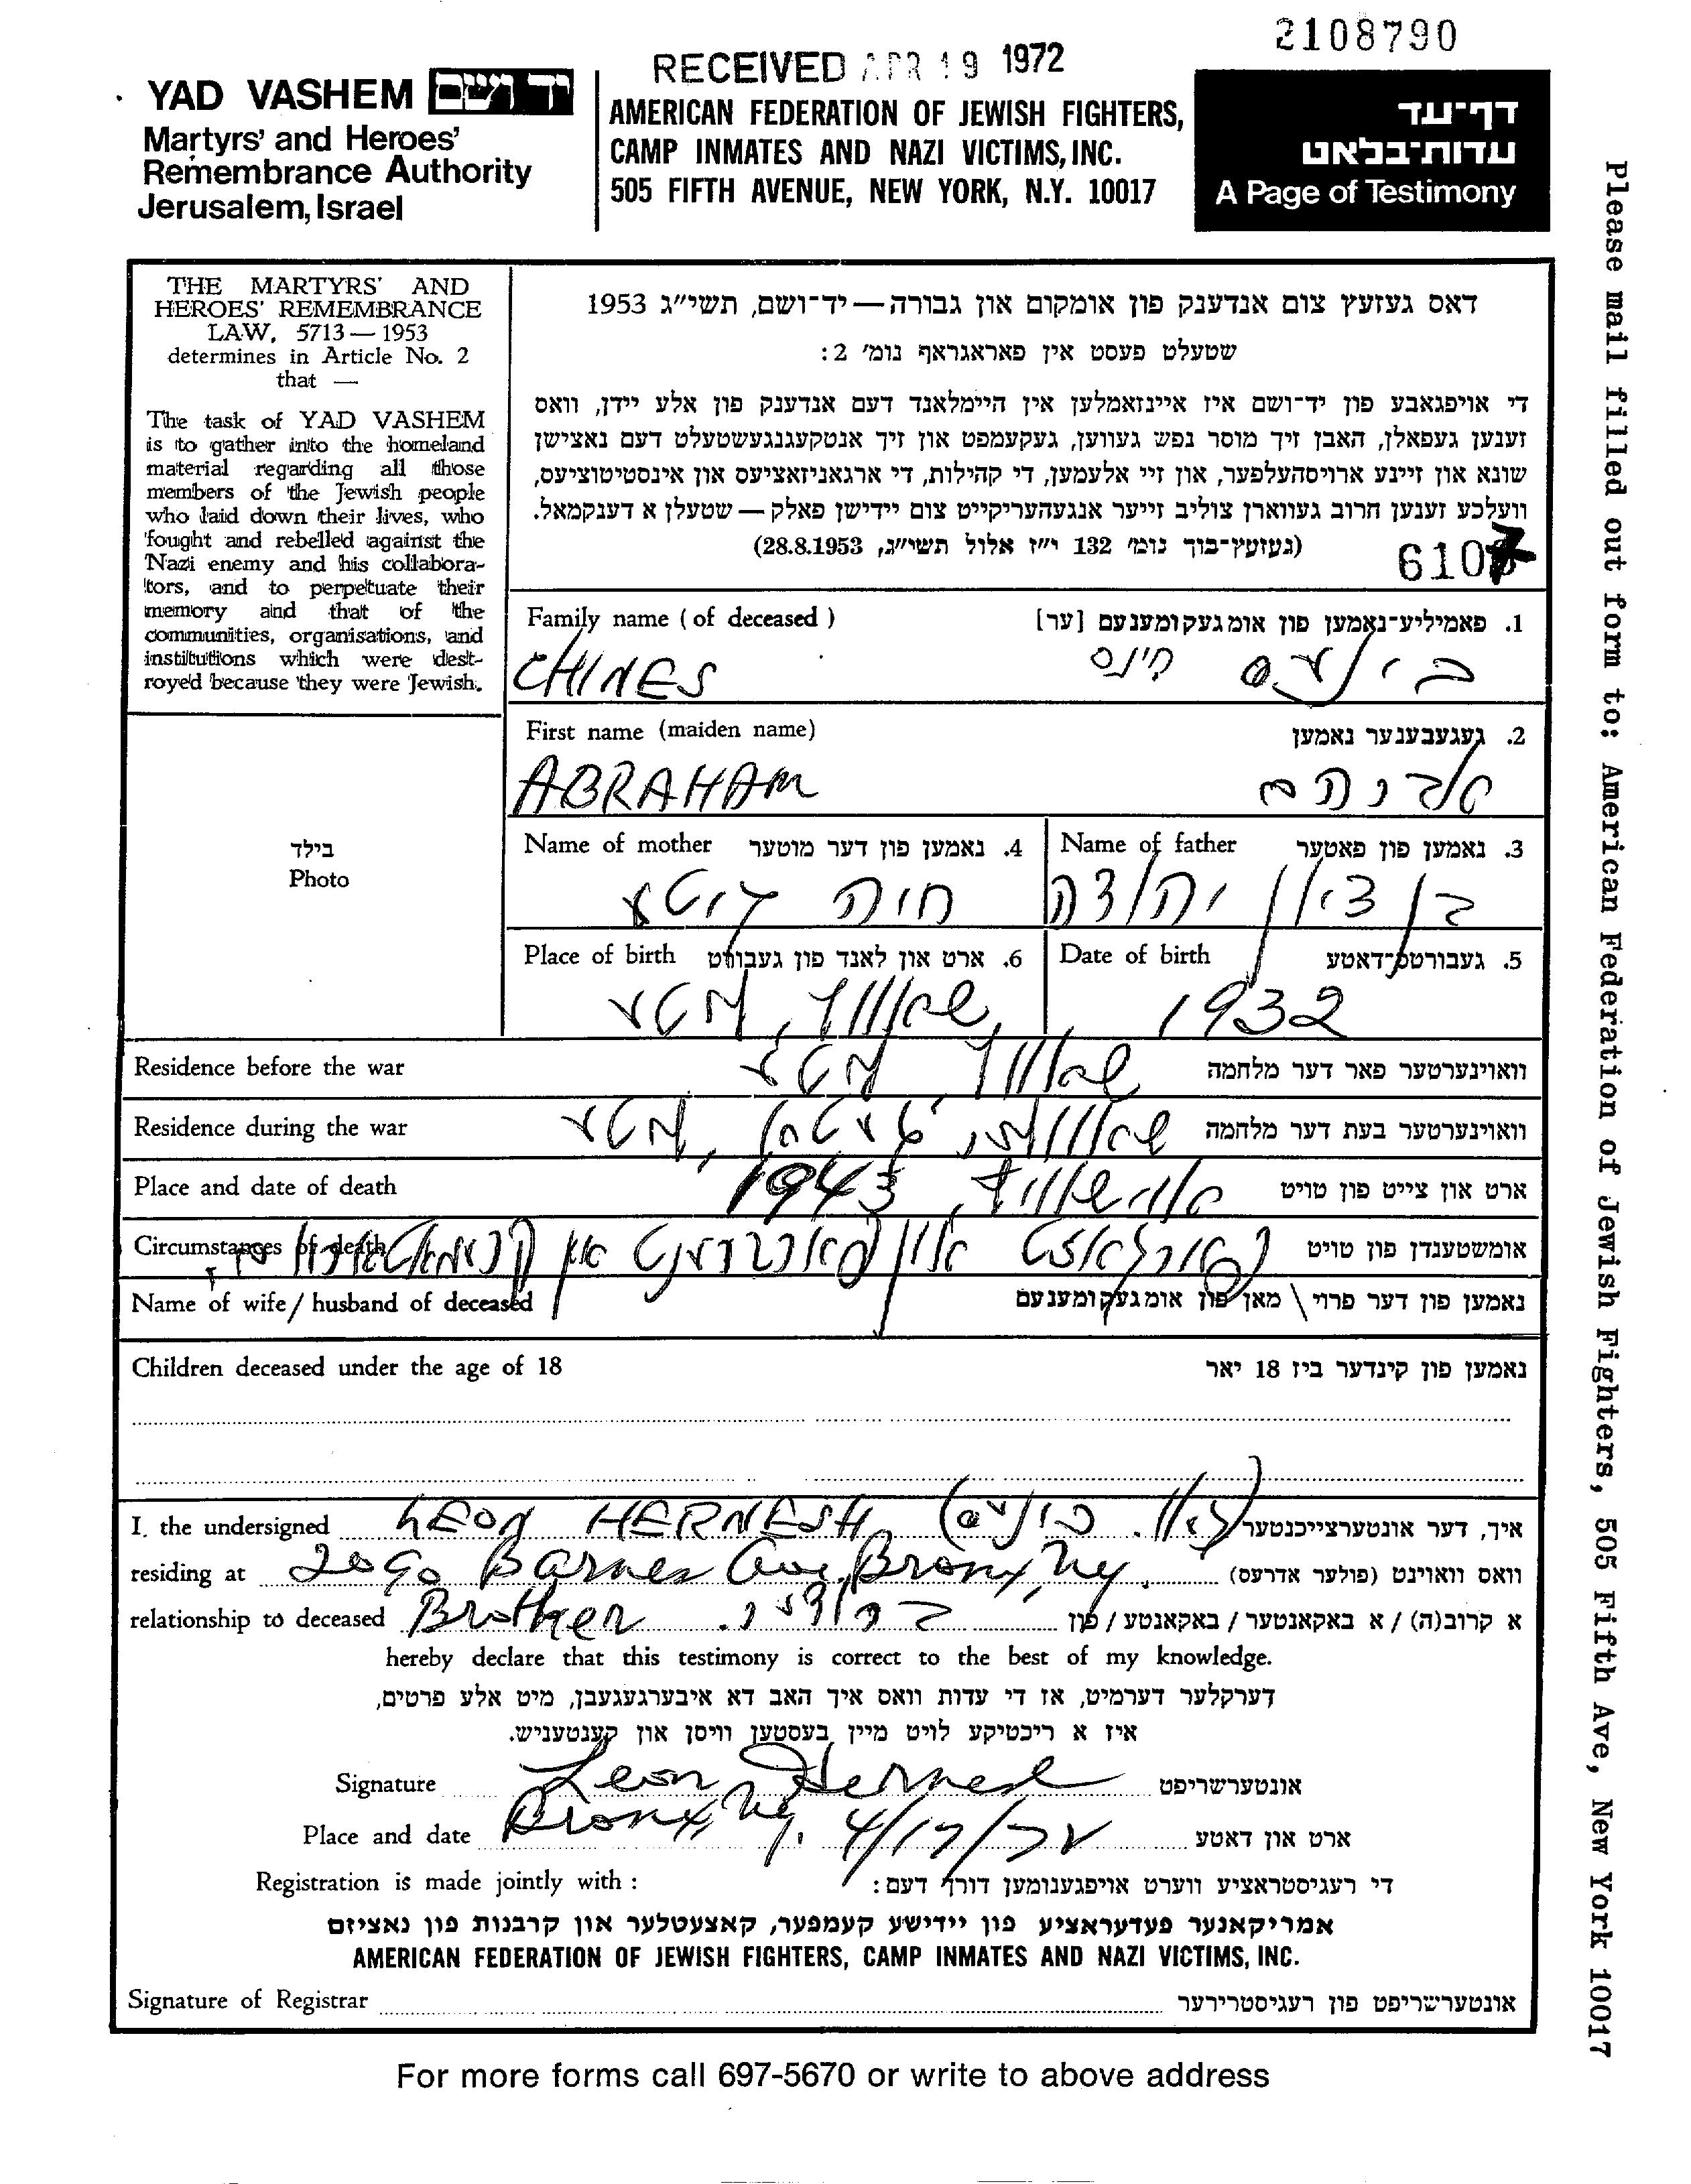 2108790
RECEIVED APR 19 1972
YAD VASHEM יד ושם
Martyrs' and Heroes'
Remembrance Authority
Jerusalem, Israel
AMERICAN FEDERATION OF JEWISH FIGHTERS,
CAMP INMATES AND NAZI VICTIMS, INC.
505 FIFTH AVENUE, NEW YORK, N.Y. 10017
דף-עד
עדות-בלאט
A Page of Testimony
THE MARTYRS' AND
HEROES' REMEMBRANCE
LAW, 5713 — 1953
determines in Article No. 2
that —
The task of YAD VASHEM
is to gather into the homeland
material regarding all those
members of the Jewish people
who laid down their lives, who
fought and rebelled against the
Nazi enemy and his collabora-
tors, and to perpetuate their
memory and that of the
communities, organisations, and
institutions which were dest-
royed because they were Jewish.
דאס געזעץ צום אנדענק פון אומקום און גבורה — יד-ושם, תשי"ג 1953
שטעלט פעסט אין פאראגראף נומ' 2:
די אויפגאבע פון יד-ושם איז איינזאמלען אין היימלאנד דעם אנדענק פון אלע יידן, וואס
זענען געפאלן, האבן זיך מוסר נפש געווען, געקעמפט און זיך אנטקעגנגעשטעלט דעם נאצישן
שונא און זיינע ארויסהעלפער, און זיי אלעמען, די קהילות, די ארגאניזאציעס און אינסטיטוציעס,
וועלכע זענען חרוב געווארן צוליב זייער אנגעהעריקייט צום יידישן פאלק — שטעלן א דענקמאל.
(געזעץ-בוך נומ' 132 י"ז אלול תשי"ג, 28.8.1953)
6107
Family name (of deceased) 1. פאמיליע-נאמען פון אומגעקומענעם [ער]
CHINES חינס
First name (maiden name) 2. געגעבענער נאמען
ABRAHAM אברהם
בילד
Photo
Name of mother 4. נאמען פון דער מוטער Name of father 3. נאמען פון פאטער
חיה בן ציון יהודה
Place of birth 6. ארט און לאנד פון געבורט Date of birth 5. געבורטס-דאטע
1932
Residence before the war וואוינערטער פאר דער מלחמה
Residence during the war וואוינערטער בעת דער מלחמה
Place and date of death ארט און צייט פון טויט
1943
Circumstances of death אומשטענדן פון טויט
און
Name of wife / husband of deceased נאמען פון דער פרוי \ מאן פון אומגעקומענעם
Children deceased under the age of 18 נאמען פון קינדער ביז 18 יאר
I, the undersigned LEON HERNESH איך, דער אונטערצייכנטער
residing at 2090 Barnes Ave, Bronx, Ny. וואס וואוינט (פולער אדרעס)
relationship to deceased Brother ברודער. א קרוב(ה) / א באקאנטער / באקאנטע / פון
hereby declare that this testimony is correct to the best of my knowledge.
דערקלער דערמיט, אז די עדות וואס איך האב דא איבערגעגעבן, מיט אלע פרטים,
איז א ריכטיקע לויט מיין בעסטען וויסן און קענטעניש.
Signature Leon Hernesh אונטערשריפט
Place and date Bronx, Ny. 4/17/72 ארט און דאטע
Registration is made jointly with : די רעגיסטראציע ווערט אויפגענומען דורך דעם:
אמריקאנער פעדעראציע פון יידישע קעמפער, קאצעטלער און קרבנות פון נאציזם
AMERICAN FEDERATION OF JEWISH FIGHTERS, CAMP INMATES AND NAZI VICTIMS, INC.
Signature of Registrar אונטערשריפט פון רעגיסטרירער
For more forms call 697-5670 or write to above address
Please mail filled out form to: American Federation of Jewish Fighters, 505 Fifth Ave, New York 10017